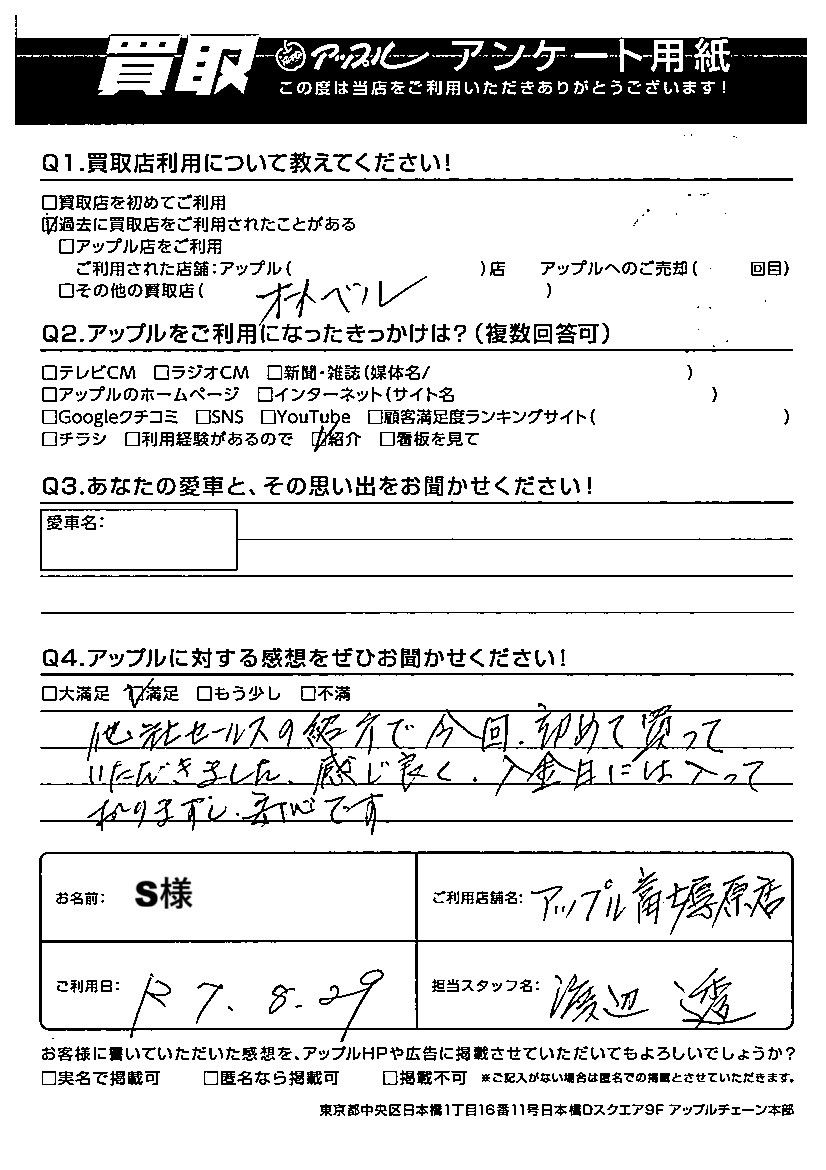 買取 アップル アンケート用紙
この度は当店をご利用いただきありがとうございます!
Q1.買取店利用について教えてください!
□買取店を初めてご利用
☑過去に買取店をご利用されたことがある
□アップル店をご利用
ご利用された店舗:アップル( )店 アップルへのご売却( 回目)
□その他の買取店( オートベル )
Q2.アップルをご利用になったきっかけは?(複数回答可)
□テレビCM □ラジオCM □新聞・雑誌(媒体名/ )
□アップルのホームページ □インターネット(サイト名 )
□Googleクチコミ □SNS □YouTube □顧客満足度ランキングサイト( )
□チラシ □利用経験があるので ☑紹介 □看板を見て
Q3.あなたの愛車と、その思い出をお聞かせください!
愛車名:
Q4.アップルに対する感想をぜひお聞かせください!
□大満足 ☑満足 □もう少し □不満
他社セールスの紹介で今回、初めて買って
いただきました、感じ良く、入金日には入って
おりますし、安心です
お名前: S様
ご利用店舗名: アップル茜塚原店
ご利用日: R7.8.29
担当スタッフ名: 渡辺 透
お客様に書いていただいた感想を、アップルHPや広告に掲載させていただいてもよろしいでしょうか?
□実名で掲載可 □匿名なら掲載可 □掲載不可 ※ご記入がない場合は匿名での掲載とさせていただきます。
東京都中央区日本橋1丁目16番11号日本橋Dスクエア9F アップルチェーン本部